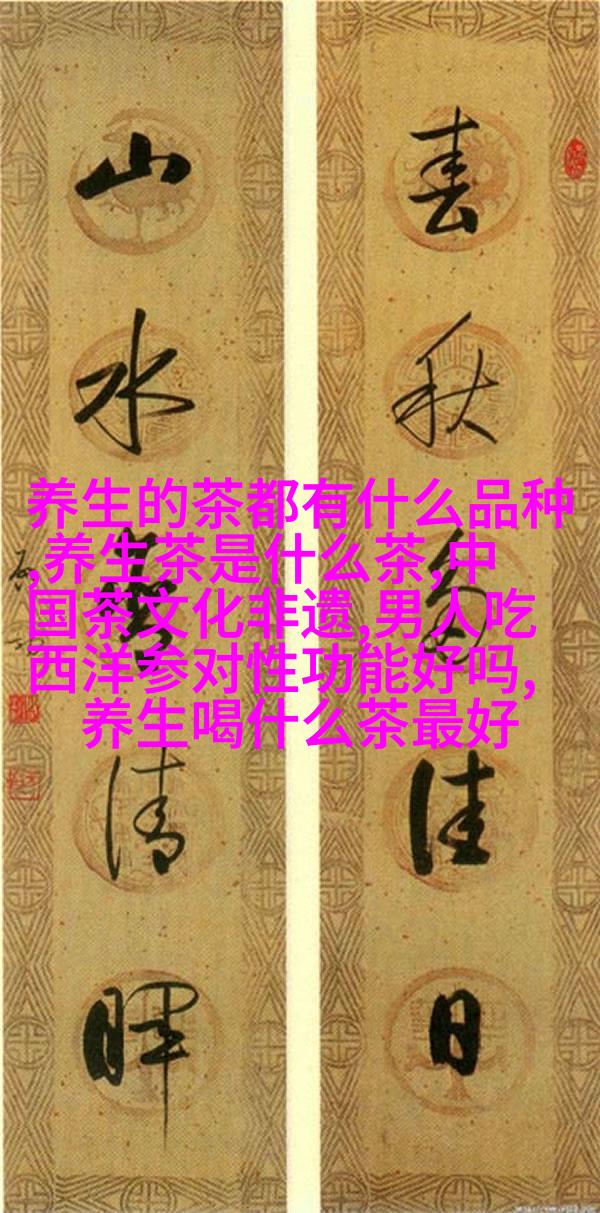 春秋多佳日
山水清暉
养生的茶都有什么品种
,养生茶是什么茶,中
国茶文化非遗,男人吃
西洋参对性功能好吗,
养生喝什么茶最好